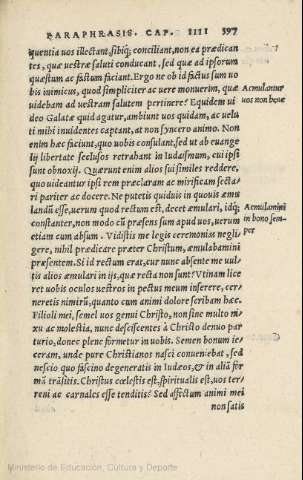 PARAPHRASIS. CAP. IIII 397
quentia uos illectant, sibiq; conciliant, non ea prædican
tes, quæ uestræ saluti conducant, sed quæ ad ipsorum
quæstum ac fastum faciant. Ergo ne ob id factus sum uo
bis inimicus, quod simpliciter ac uere monuerim, quæ
Aemulantur
uidebam ad uestram salutem pertinere? Equidem ui
uos non bene
deo Galatæ quid agatur, ambiunt uos quidam, ac uelu
ti mihi inuidentes captant, at non syncero animo. Non
enim hæc faciunt, quo uobis consulant, sed ut ab euange
lij libertate seclusos retrahant in Iudaismum, cui ipsi
sunt obnoxij. Quærunt enim alios sui similes reddere,
quo uideantur ipsi rem præclaram ac mirificam secta/
ri pariter ac docere. Ne putetis quiduis in quouis æmu
landū esse, uerum quod rectum est, decet æmulari, idq;
Aemulamini
constanter, non modo cū præsens sum apud uos, uerum
in bono sem-
etiam cum absum. Vidistis me legis ceremonias negli/
per
gere, nihil prædicare præter Christum, æmulabamini
præsentem. Si id rectum erat, cur nunc absente me uul/
tis alios æmulari in ijs, quæ recta non sunt? Vtinam lice
ret uobis oculos uestros in pectus meum inserere, cer/
neretis nimirū, quanto cum animi dolore scribam hæc.
Filioli mei, semel uos genui Christo, non sine multo ni/
xu ac molestia, nunc desciscentes à Christo denuo par
turio, donec plene formetur in uobis. Semen bonum ie/
ceram, unde pure Christianos nasci conueniebat, sed
nescio quo fascino degeneratis in Iudæos, & in aliā for
mā trāsitis. Christus cœlestis est, spiritualis est, uos ter/
reni ac carnales esse tenditis? Sed affectum animi mei
non satis
Ministerio de Educación, Cultura y Deporte